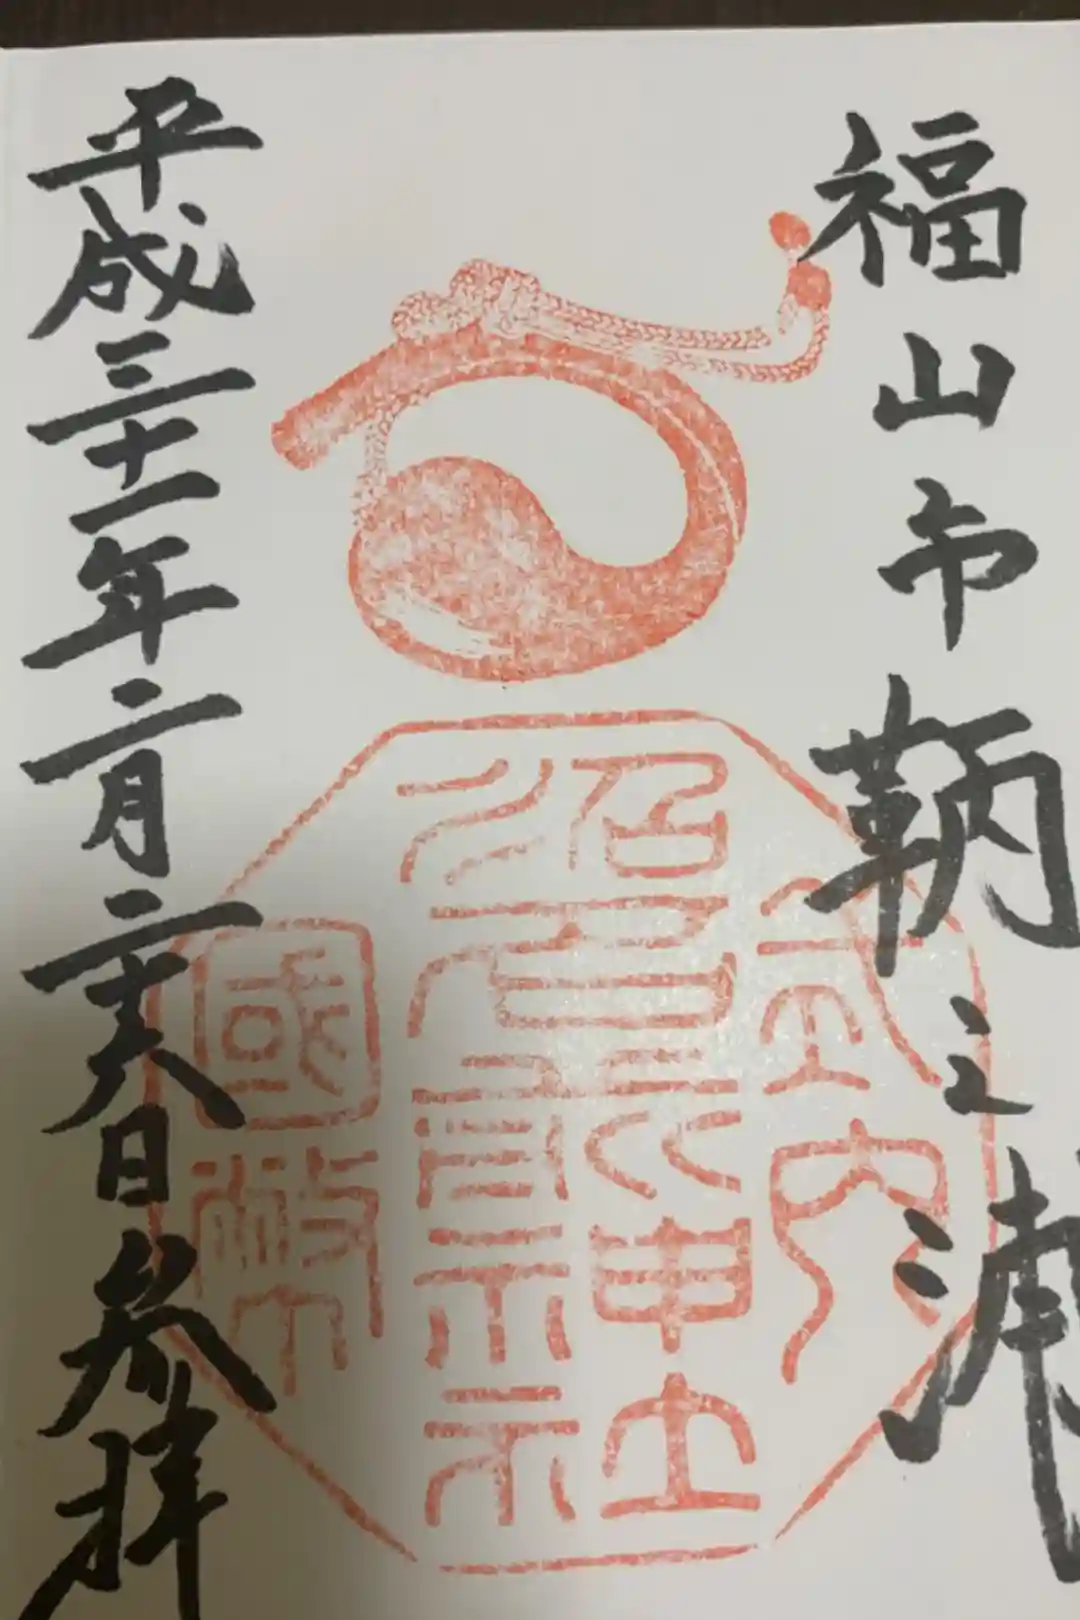 福山市鞆之浦
式内
沼名前神社
國幣
平成三十一年二月二十六日参拝